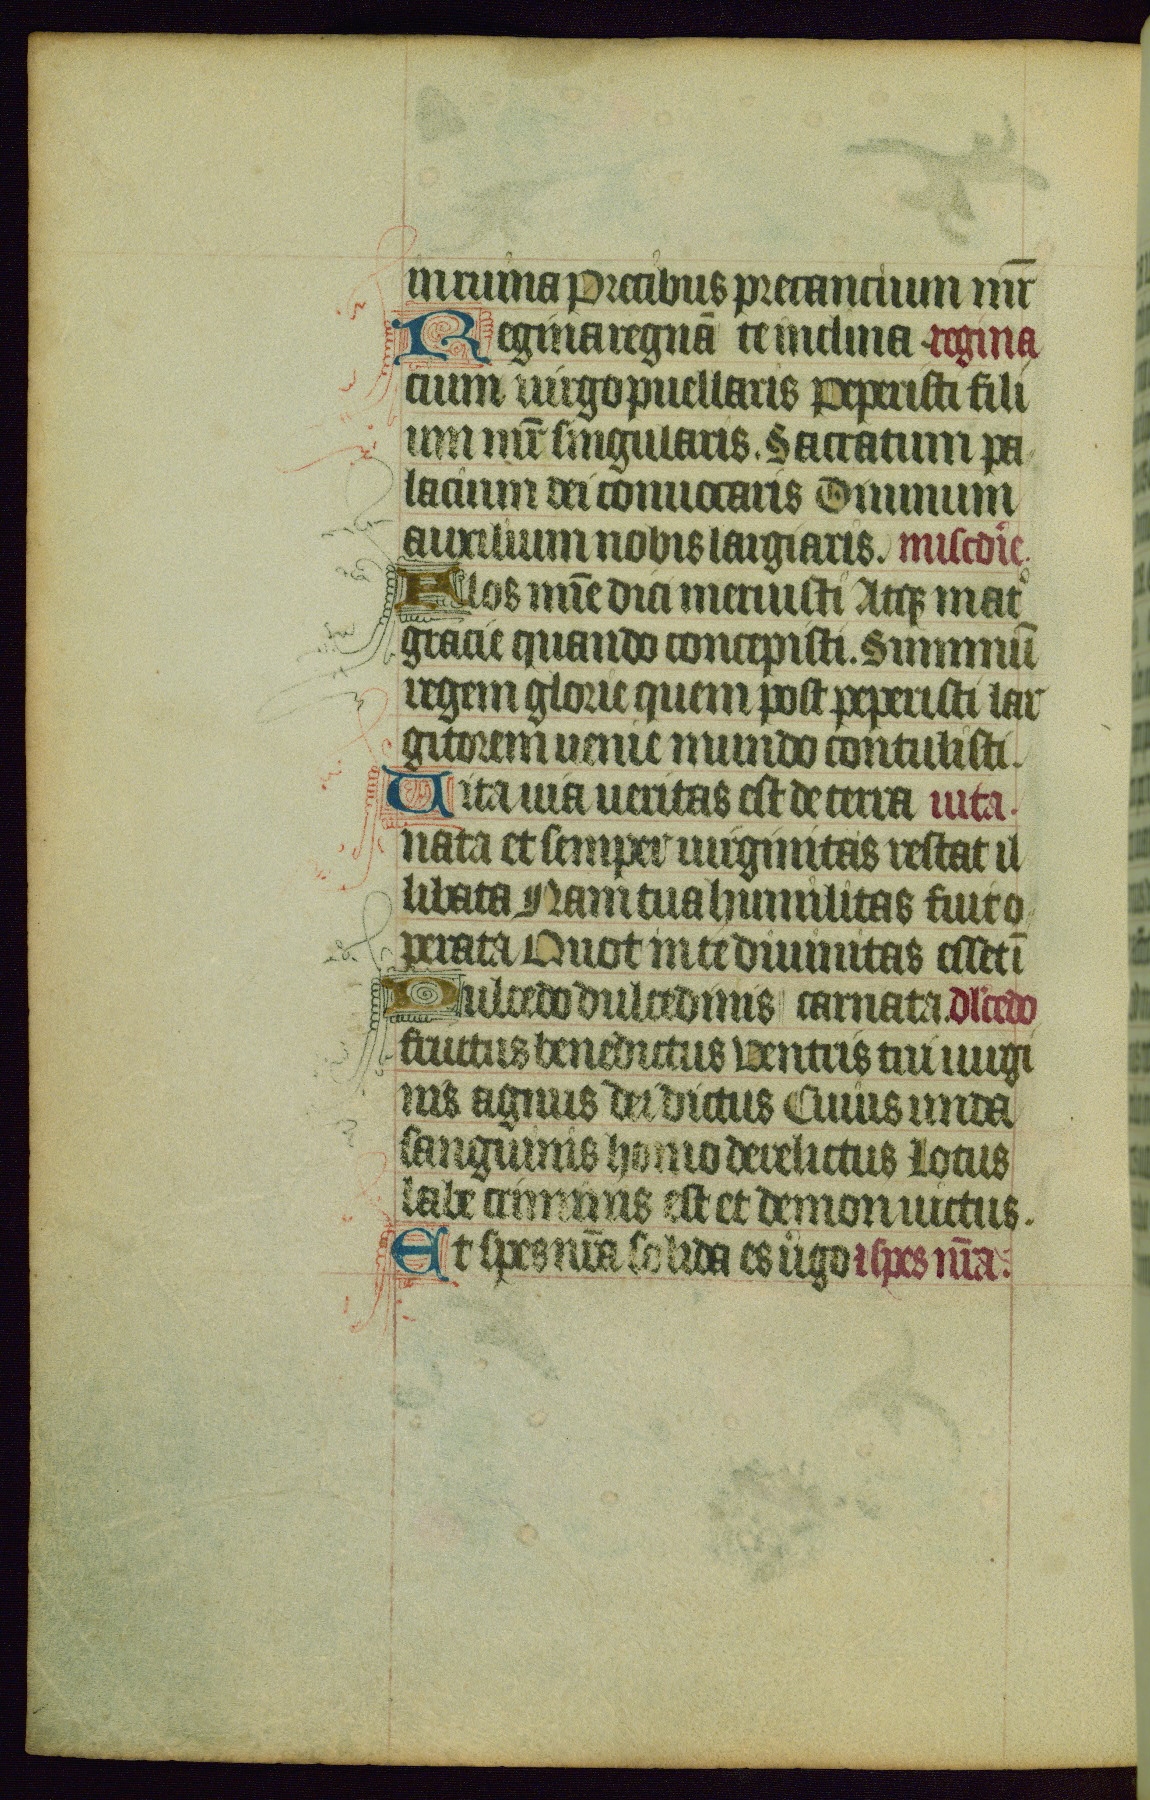 in ruina Precibus precancium mr̄
Regina regnā te inclina regina
cium uirgo puellaris Peperisti fili
um mr̄ singularis. Sacratum pa
lacium dei conuocaris Diuinum
auxilium nobis largiaris. miscdīe.
Flos mīe dici meruisti Atq; mat̉
gracie quando concepisti. Summū
regem glorie quem post peperisti lar
gitorem uenie mundo contulisti.
Uita uia ueritas est de terra uita.
nata et semper uirginitas restat il
libata Nam tua humilitas fuit o
perata Quot in te diuinitas esset ī
Dulcedo dulcedinis carnata. dl̄cedo
fructus benedictus Ventris tui uirgi
nis agnus dei dictus Cuius unda
sanguinis homo derelictus Lotus
labe criminis est et demon uictus.
Et spes nr̄a solida es ůgo ⁊ spes nr̄a.